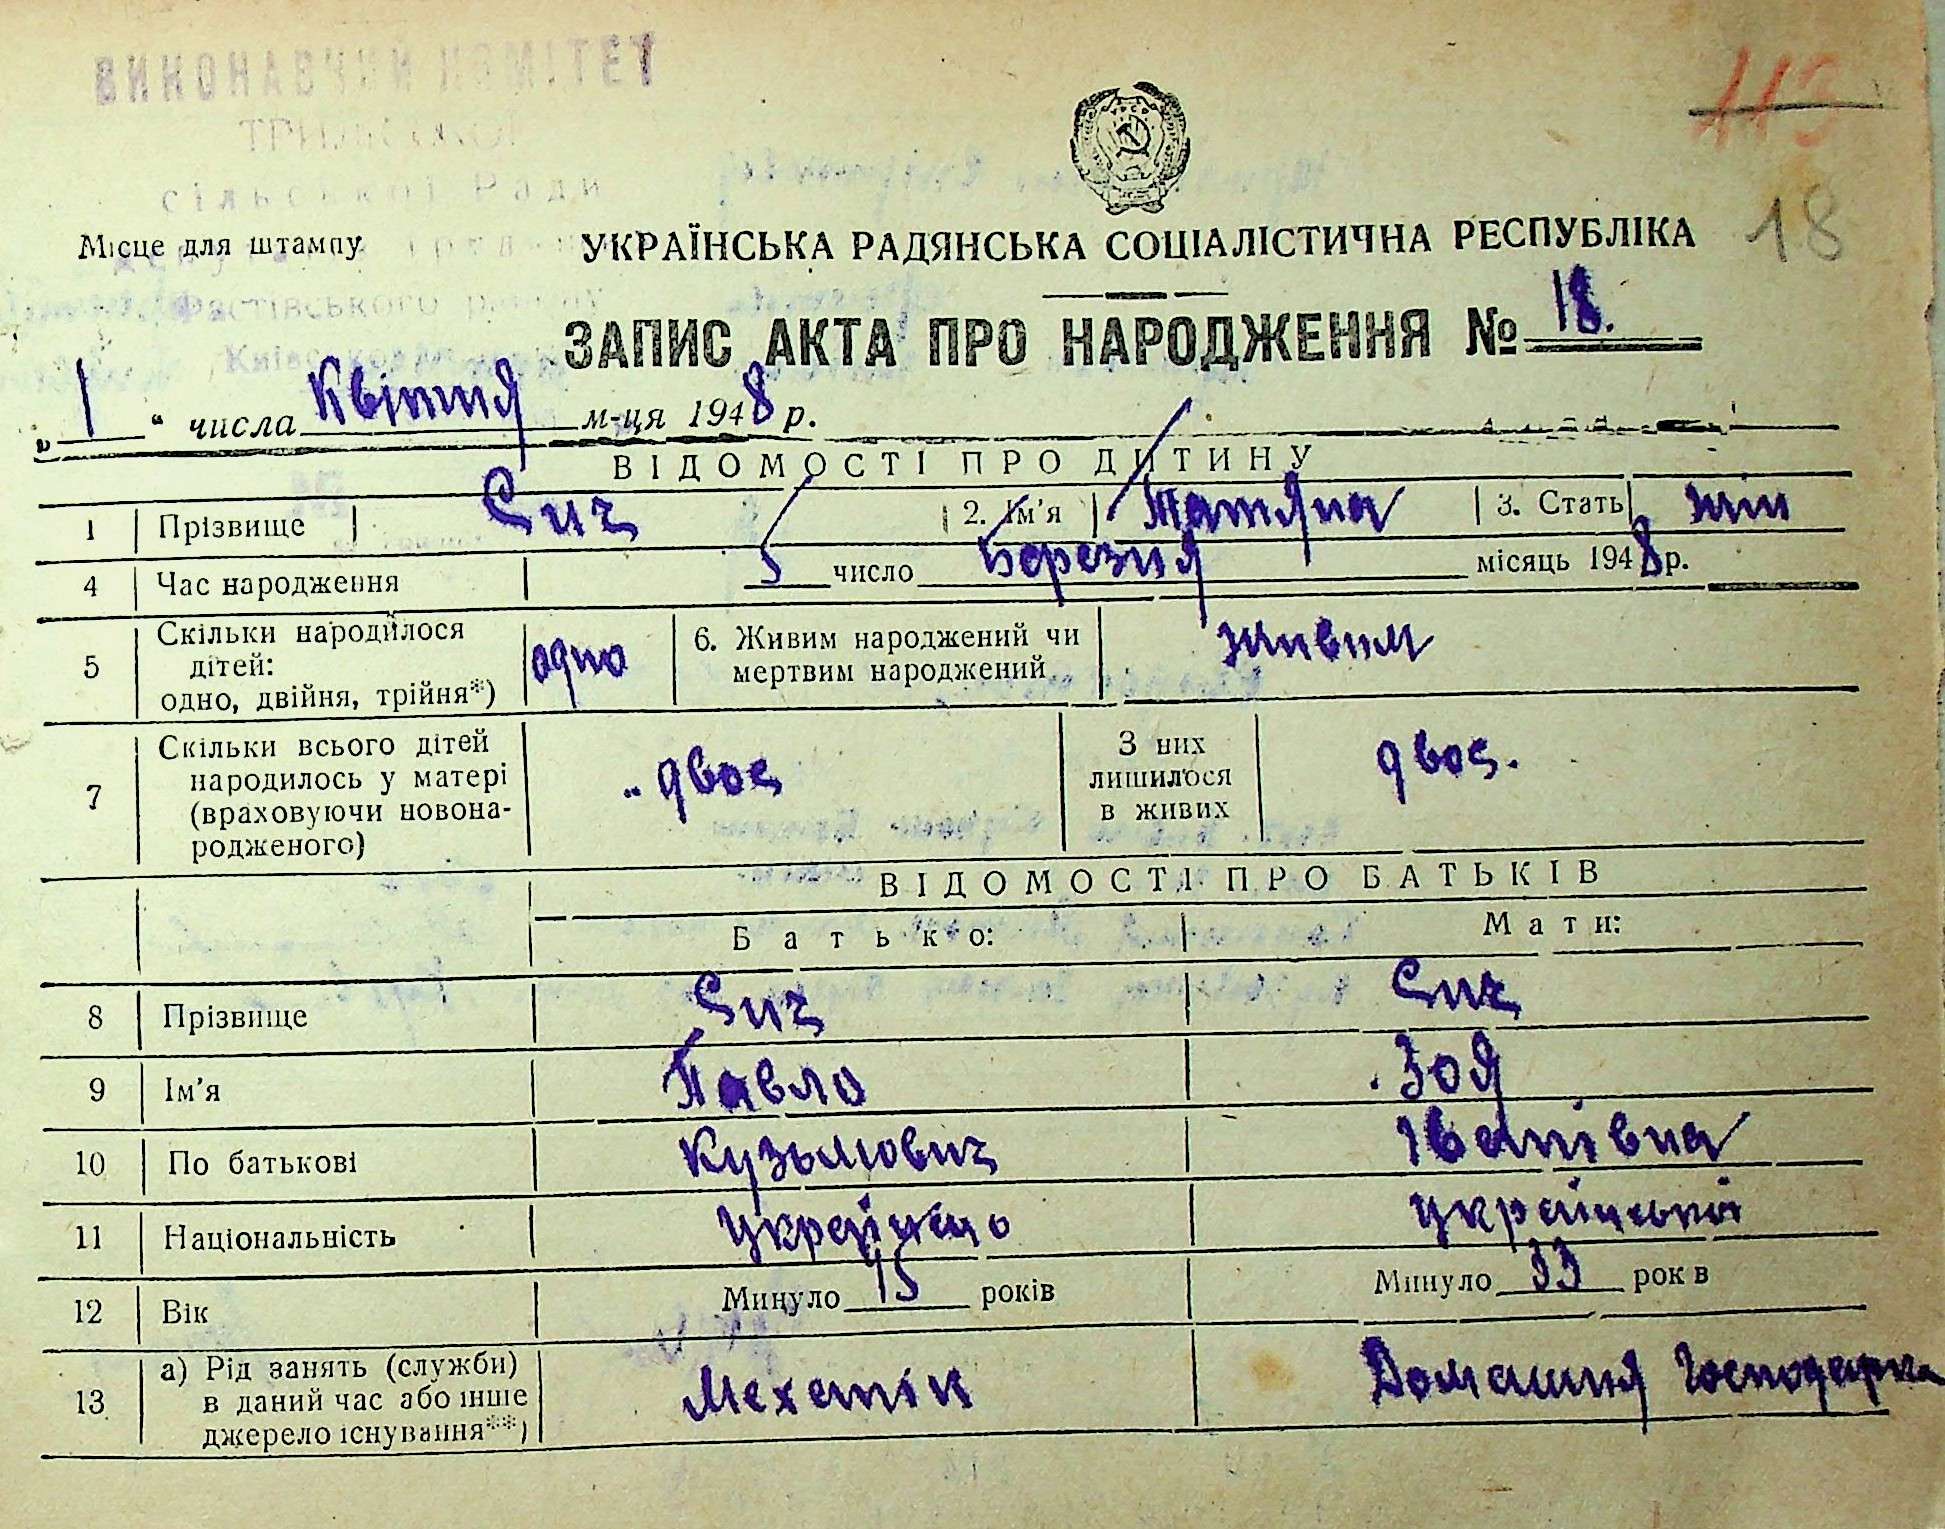 ВИКОНАВЧИЙ КОМІТЕТ
сільської Ради
Фастівського району
113
18
Місце для штампу
УКРАЇНСЬКА РАДЯНСЬКА СОЦІАЛІСТИЧНА РЕСПУБЛІКА
ЗАПИС АКТА ПРО НАРОДЖЕННЯ № 18.
„1“ числа Квітня м-ця 1948 р.
ВІДОМОСТІ ПРО ДИТИНУ
1 Прізвище Сич 2. Ім'я Татяна 3. Стать жін
4 Час народження 5 число Березня місяць 1948 р.
5 Скільки народилося дітей: одно, двійня, трійня*) одно 6. Живим народжений чи мертвим народжений живим
7 Скільки всього дітей народилось у матері (враховуючи новонародженого) двоє З них лишилося в живих двоє.
ВІДОМОСТІ ПРО БАТЬКІВ
Батько: Мати:
8 Прізвище Сич Сич
9 Ім'я Павло Зоя
10 По батькові Кузьмович Іванівна
11 Національність
12 Вік Минуло 45 років Минуло 33 рок в
13 а) Рід занять (служби) в даний час або інше джерело існування**) Механік Домашня Господарка